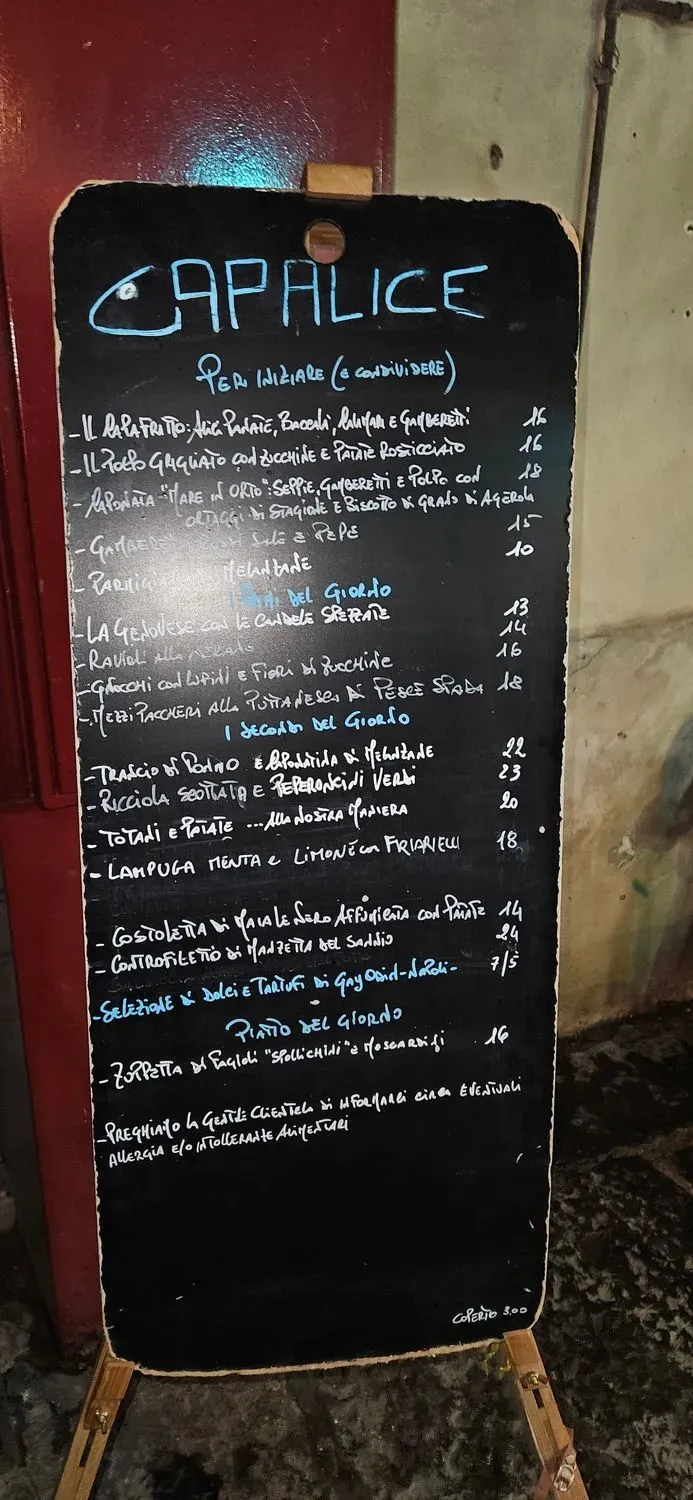 CAPALICE
PER INIZIARE (E CONDIVIDERE)
- IL CAPAFRITTO: ALICI PANATE, BACCALÀ, CALAMARI E GAMBERETTI 16
- IL POLPO GRIGLIATO CON ZUCCHINE E PATATE ROSTICCIATO 16
- CAPONATA "MARE IN ORTO": SEPPIE, GAMBERETTI E POLPO CON 18
ORTAGGI DI STAGIONE E BISCOTTO DI GRANO DI AGEROLA
- SALE E PEPE 15
- MELANZANE 10
DEL GIORNO
- LA GENOVESE CON LE CANDELE SPEZZATE 13
- RAVIOLI ALLA 14
- GNOCCHI CON LUPINI E FIORI DI ZUCCHINE 16
- MEZZI PACCHERI ALLA PUTTANESCA DI PESCE SPADA 18
I SECONDI DEL GIORNO
- TRANCIO DI TONNO E CAPONATINA DI MELANZANE 22
- RICCIOLA SCOTTATA E PEPERONCINI VERDI 23
- TOTANI E PATATE ... ALLA NOSTRA MANIERA 20
- LAMPUGA MENTA E LIMONE CON FRIARIELLI 18
- COSTOLETTA DI MAIALE NERO AFFUMICATA CON PATATE 14
- CONTROFILETTO DI MANZETTA DEL SANNIO 24
- SELEZIONE DI DOLCI E TARTUFI DI GAY ODIN - NAPOLI - 7/5
PIATTO DEL GIORNO
- ZUPPETTA DI FAGIOLI "SPOLLICHINI" E MOSCARDINI 16
- PREGHIAMO LA GENTILE CLIENTELA DI INFORMARCI CIRCA EVENTUALI
ALLERGIA E/O INTOLLERANTE ALIMENTARI
COPERTO 3.00